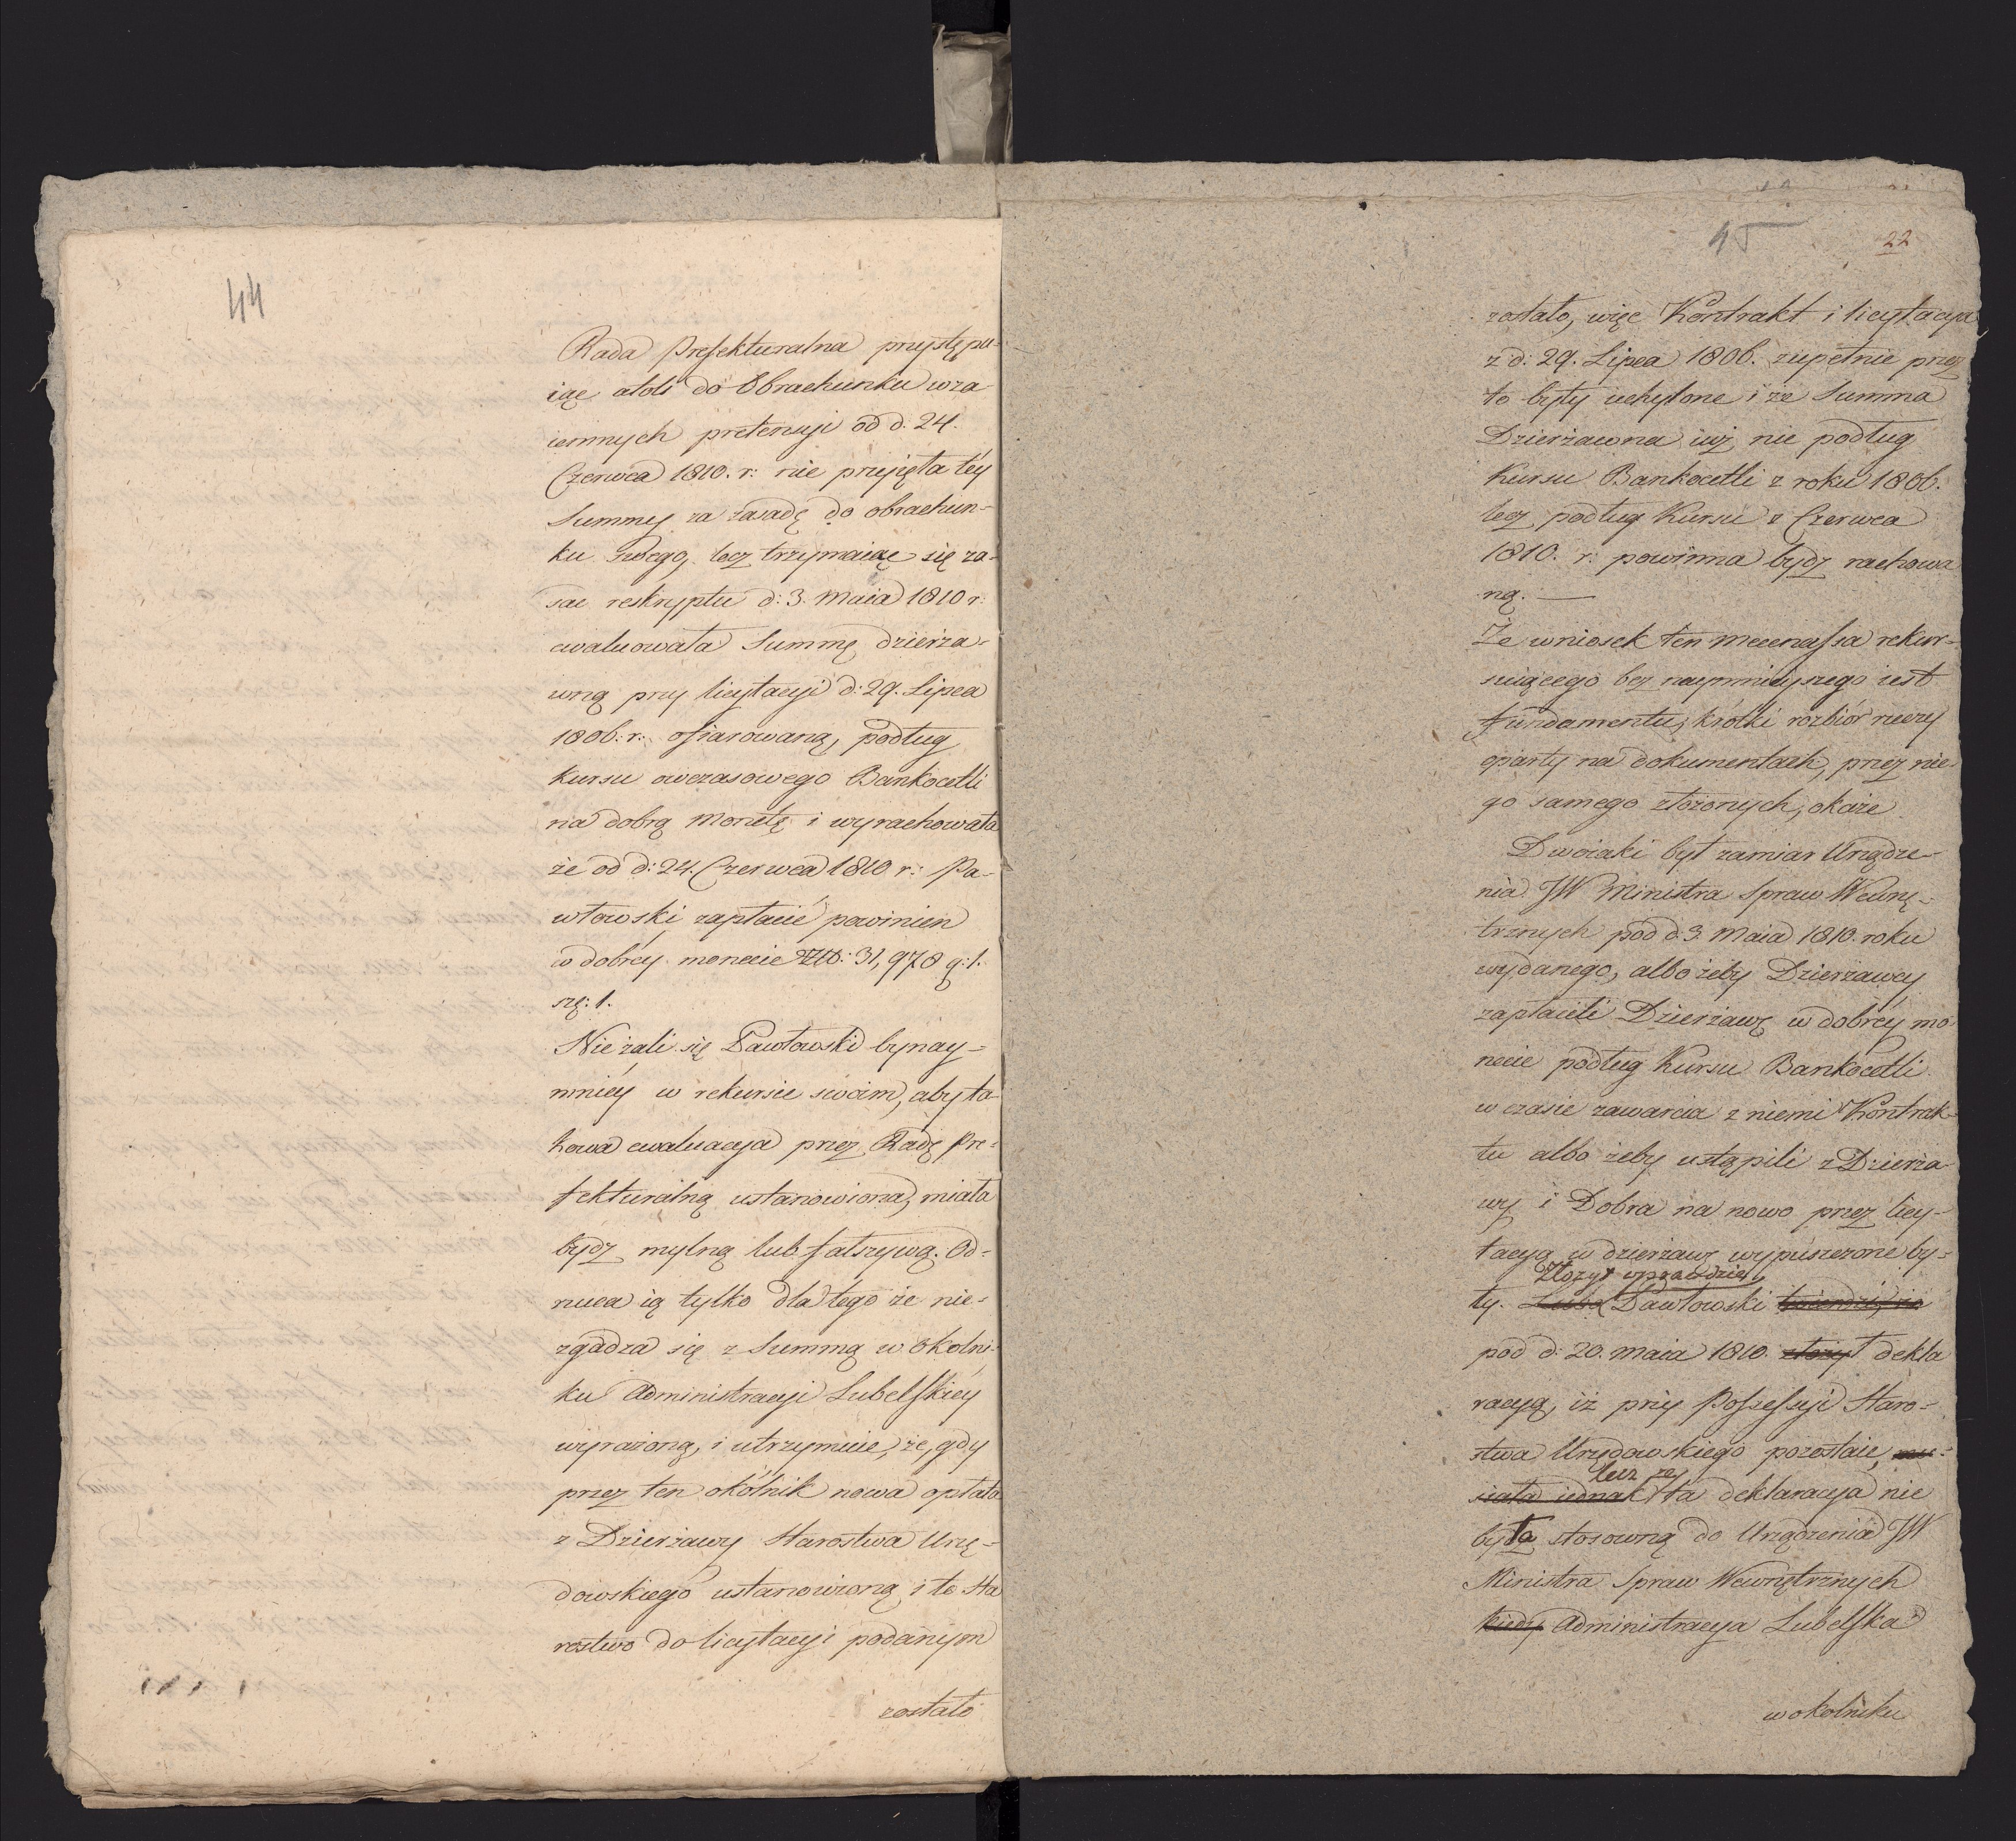 44
Rada Prefekturalna przystępu-
iąc atoli do Obrachunku wza
iemnych pretensyi od d. 24.
Czerwca 1810. r: nie przyięła téy
Summy za zasadę do obrachun-
ku swego, lecz trzymaiąc się za-
sad reskryptu d: 3. Maia 1810 r:
ewaluowała Summę dzierża-
wną przy licytacyi d: 29. Lipca
1806. r: ofiarowaną, podług
kursu owczasowego Bankocetli
na dobrą monetę i wyrachowała
że od d: 24. Czerwca 1810 r: Pa-
włowski zapłacić powinien
w dobréy monecie Złt: 31,978 g: 1.
szą: 1.
Nie żali się Pawłowski bynay-
mniéy w rekursie swoim, aby ta
kowa ewaluacya przez Radę Pre-
fekturalną ustanowiona, miała
bydź mylną lub fałszywą. Od-
rzuca ią tylko dla tego że nie-
zgadza się z Summą w okolni-
ku Administracyi Lubelskiey
wyrażoną, i utrzymuie, że, gdy
przez ten okólnik nowa opłata
z Dzierżawy Starostwa Urzę-
dowskiego ustanowioną i to Sta
rostwo do licytacyi podanym
zostało
45
22
zostało, więc Kontrakt i licytacya
z d: 29. Lipca 1806. zupełnie przez
to były uchylone i że Summa
Dzierżawna iuż nie podług
Kursu Bankocetli z roku 1806.
lecz podług Kursu z Czerwca
1810. r: powinna bydź rachowa
ną. —
Że wniosek ten Mecenassa rekur-
suiącego bez naymnieyszego iest
fundamentu, krótki rozbiór rzeczy
oparty na dokumentach, przez nie-
go samego złożonych, okaże.
Dwoiaki był zamiar Urządze-
nia JW Ministra Spraw Wewnę-
trznych pod d. 3. Maia 1810. roku
wydanego, albo żeby Dzierżawcy
zapłacili Dzierżawę w dobréy mo
necie podług Kursu Bankocetli
w czasie zawarcia z niemi Kontrak-
tu albo żeby ustąpili z Dzierża
wy i Dobra na nowo przez licy-
tacyą w dzierżawę wypuszczone by-
Złożył wprawdzie
ły. Lubo Pawłowski twierdzi, że
pod d: 20. Maia 1810. złożył dekla
racyą, iż przy Possessyi Staro-
stwa Urzędowskiego pozostaie,
lecz że
iednak ta deklaracya nie
była stosowną do Urządzenia JW
Ministra Spraw Wewnętrznych
kiedy Administracya Lubelska
w okolniku